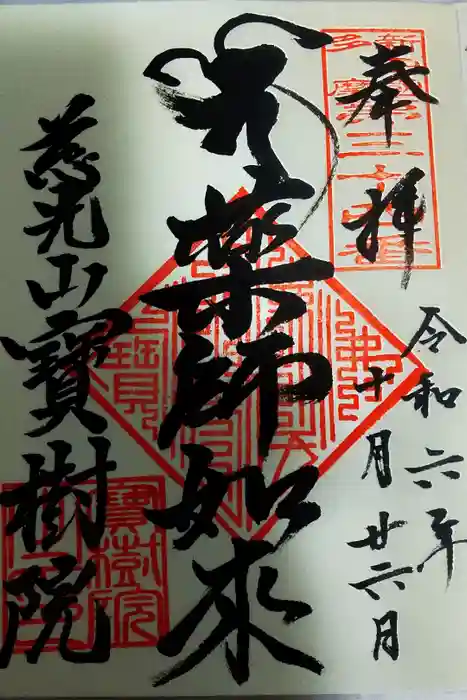 奉拝
令和六年
十月廿六日
薬師如来
慈光山寶樹院
寶樹院